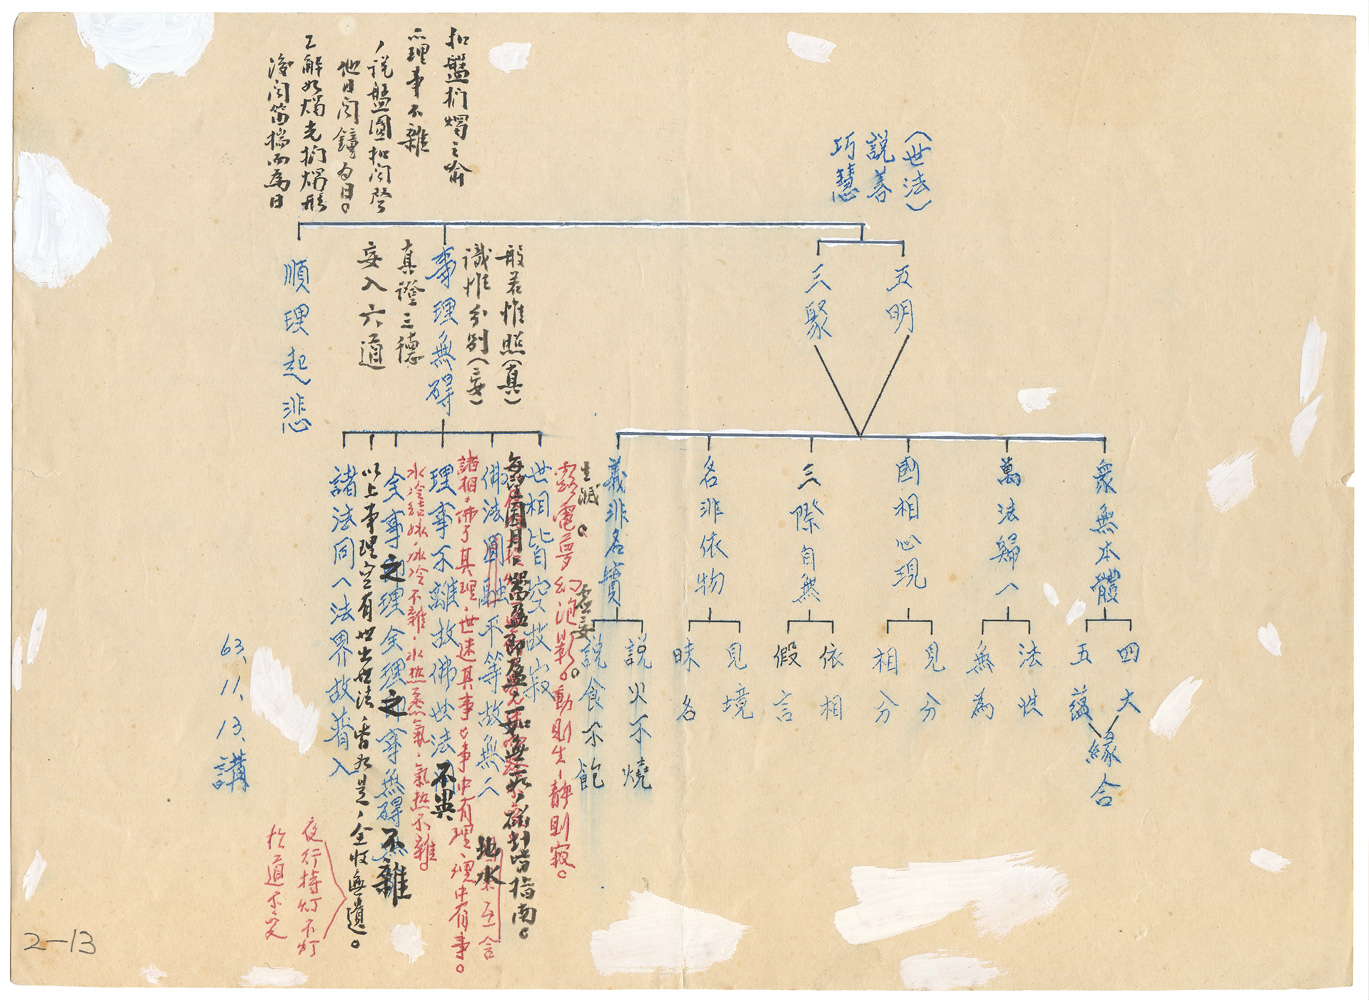 （世法）
說善
巧慧
五明
三聚
眾無本體
四大
五蘊
緣合
萬法歸一
法性
無為
國相心現
見分
相分
三際自無
依相
假言
名非依物
見境
昧名
義非名實
說火不燒
說食不飽
扣盤捫燭之喻
理事不雜
說盤圓扣聞聲
他日聞鐘為日。
解如燭光捫燭形
後聞籥揣而為日
般若惟照（真）
識惟分別（妄）
事理無碍
真證三德
妄入六道
順理起悲
生滅。
虛妄
露電夢幻泡影。動則生靜則寂。
世相皆空故寂
佛法圓融平等故無人
諸相佛了其理世迷其事。事中有理、理中有事。
理事不離故佛世法不異
水冷結冰冰冷不離水熱蒸氣氣熱不離。
全事之理全理之事無碍不離
以上事理空有世出世法香如是全收無遺。
諸法同一法界故普入
地水
夜行持灯不灯
於道不見
63、11、13、講
2-13